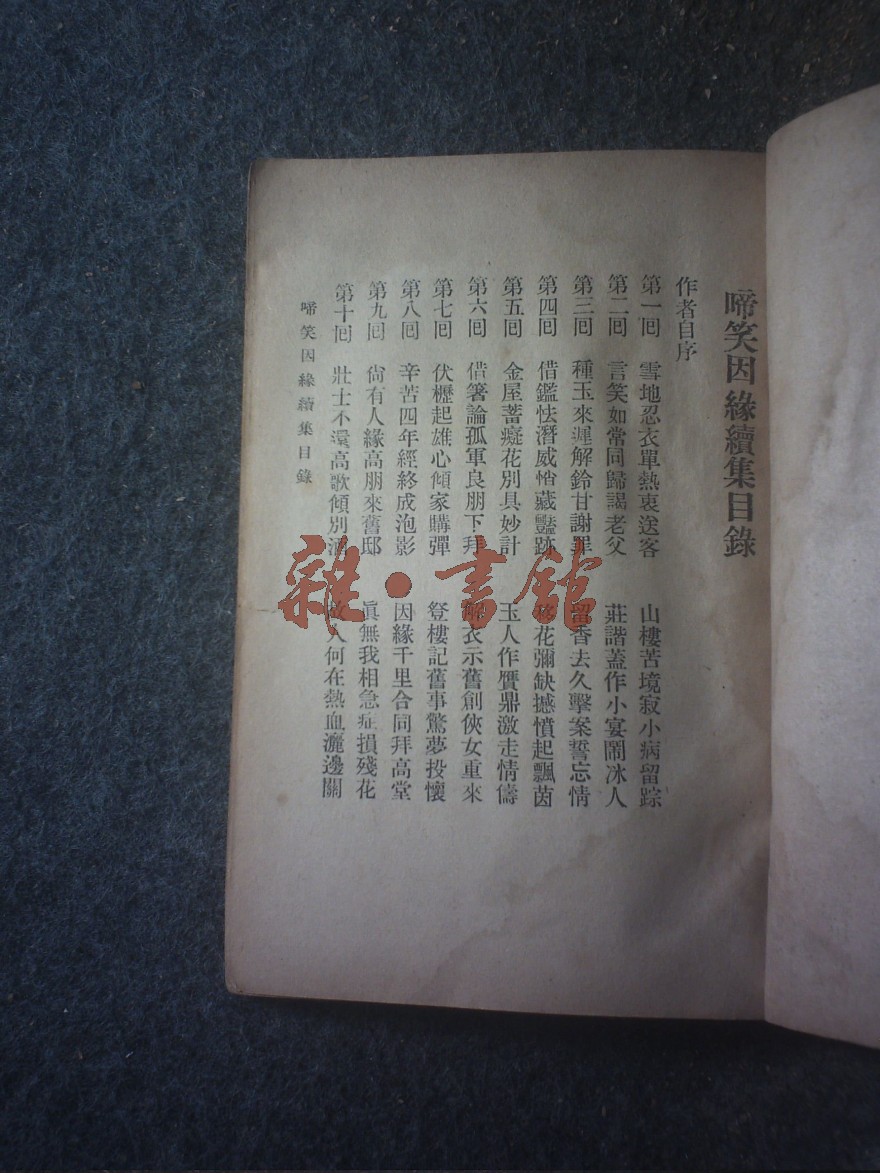 啼笑因緣續集目錄
作者自序
第一回 雪地忍衣單熱衷送客 山樓苦境寂小病留踪
第二回 言笑如常同歸謁老父 莊諧蓋作小宴鬧冰人
第三回 種玉來遲解鈴甘謝罪 留香去久擊案誓忘情
第四回 借鑑怯潛威悄藏豔跡 移花彌缺憾憤起飄茵
第五回 金屋蓄癡花別具妙計 玉人作贋鼎激走情儔
第六回 借箸論孤軍良朋下拜 解衣示舊創俠女重來
第七回 伏櫪起雄心傾家購彈 登樓記舊事驚夢投懷
第八回 辛苦四年經終成泡影 因緣千里合同拜高堂
第九回 尙有人緣高朋來舊邸 眞無我相急症損殘花
第十回 壯士不還高歌傾別酒 故人何在熱血灑邊關
啼笑因緣續集目錄
雜·書館